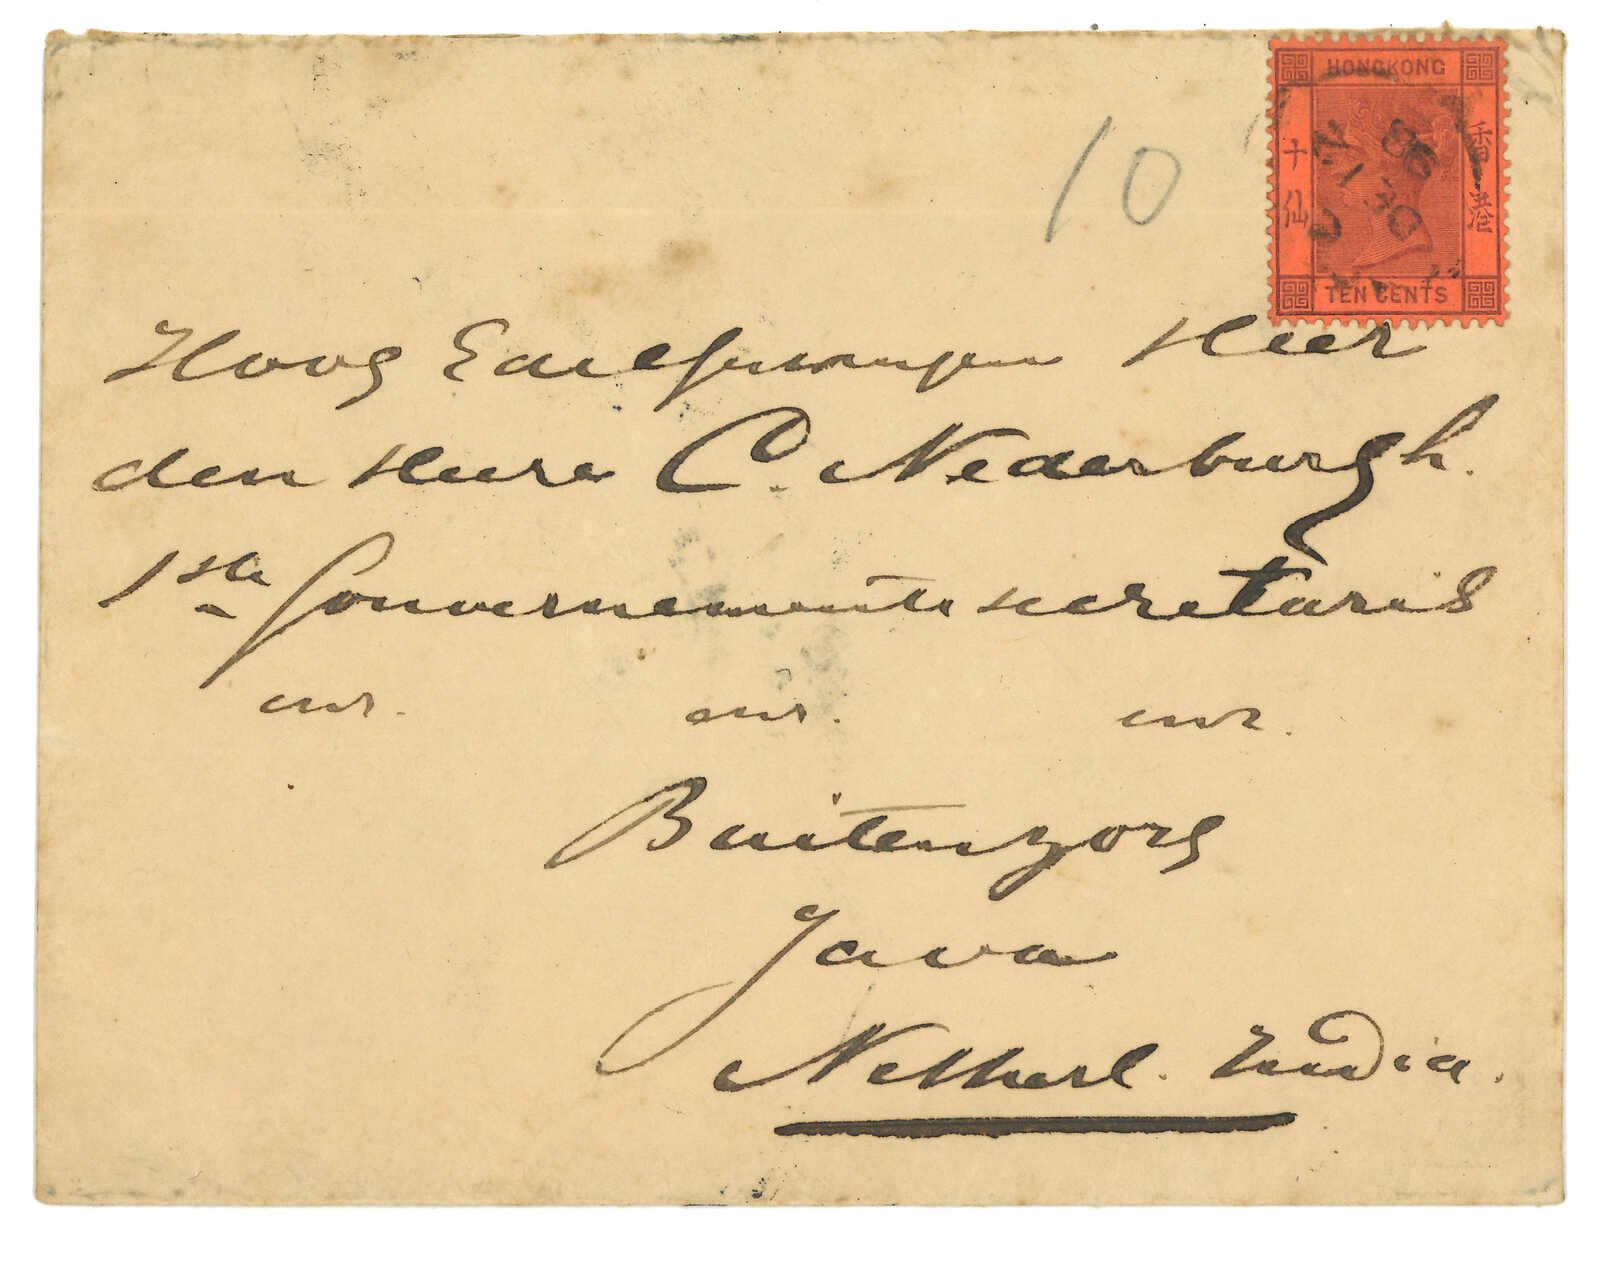 HONGKONG
香港
十仙
TEN CENTS
10
Hoog Edelgestrengen Heer
den Heere C. Nederburgh.
1ste Gouvernements secretaris
enz. enz. enz.
Buitenzorg
Java
Netherl. India.